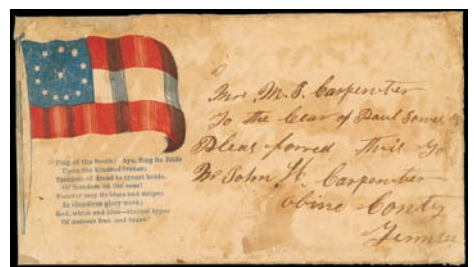 Flag of the South! Aye, fling its folds
Upon the kindred breeze;
Emblem of dread to tyrant holds,
Of freedom on the seas!
Forever may its stars and stripes
In cloudless glory wave;
Red, white and blue—eternal types
Of nations free and brave!
Mrs. M. S. Carpenter
To the Cear of Paul
Pleas forred this to
Mr John H. Carpenter
obine Conty